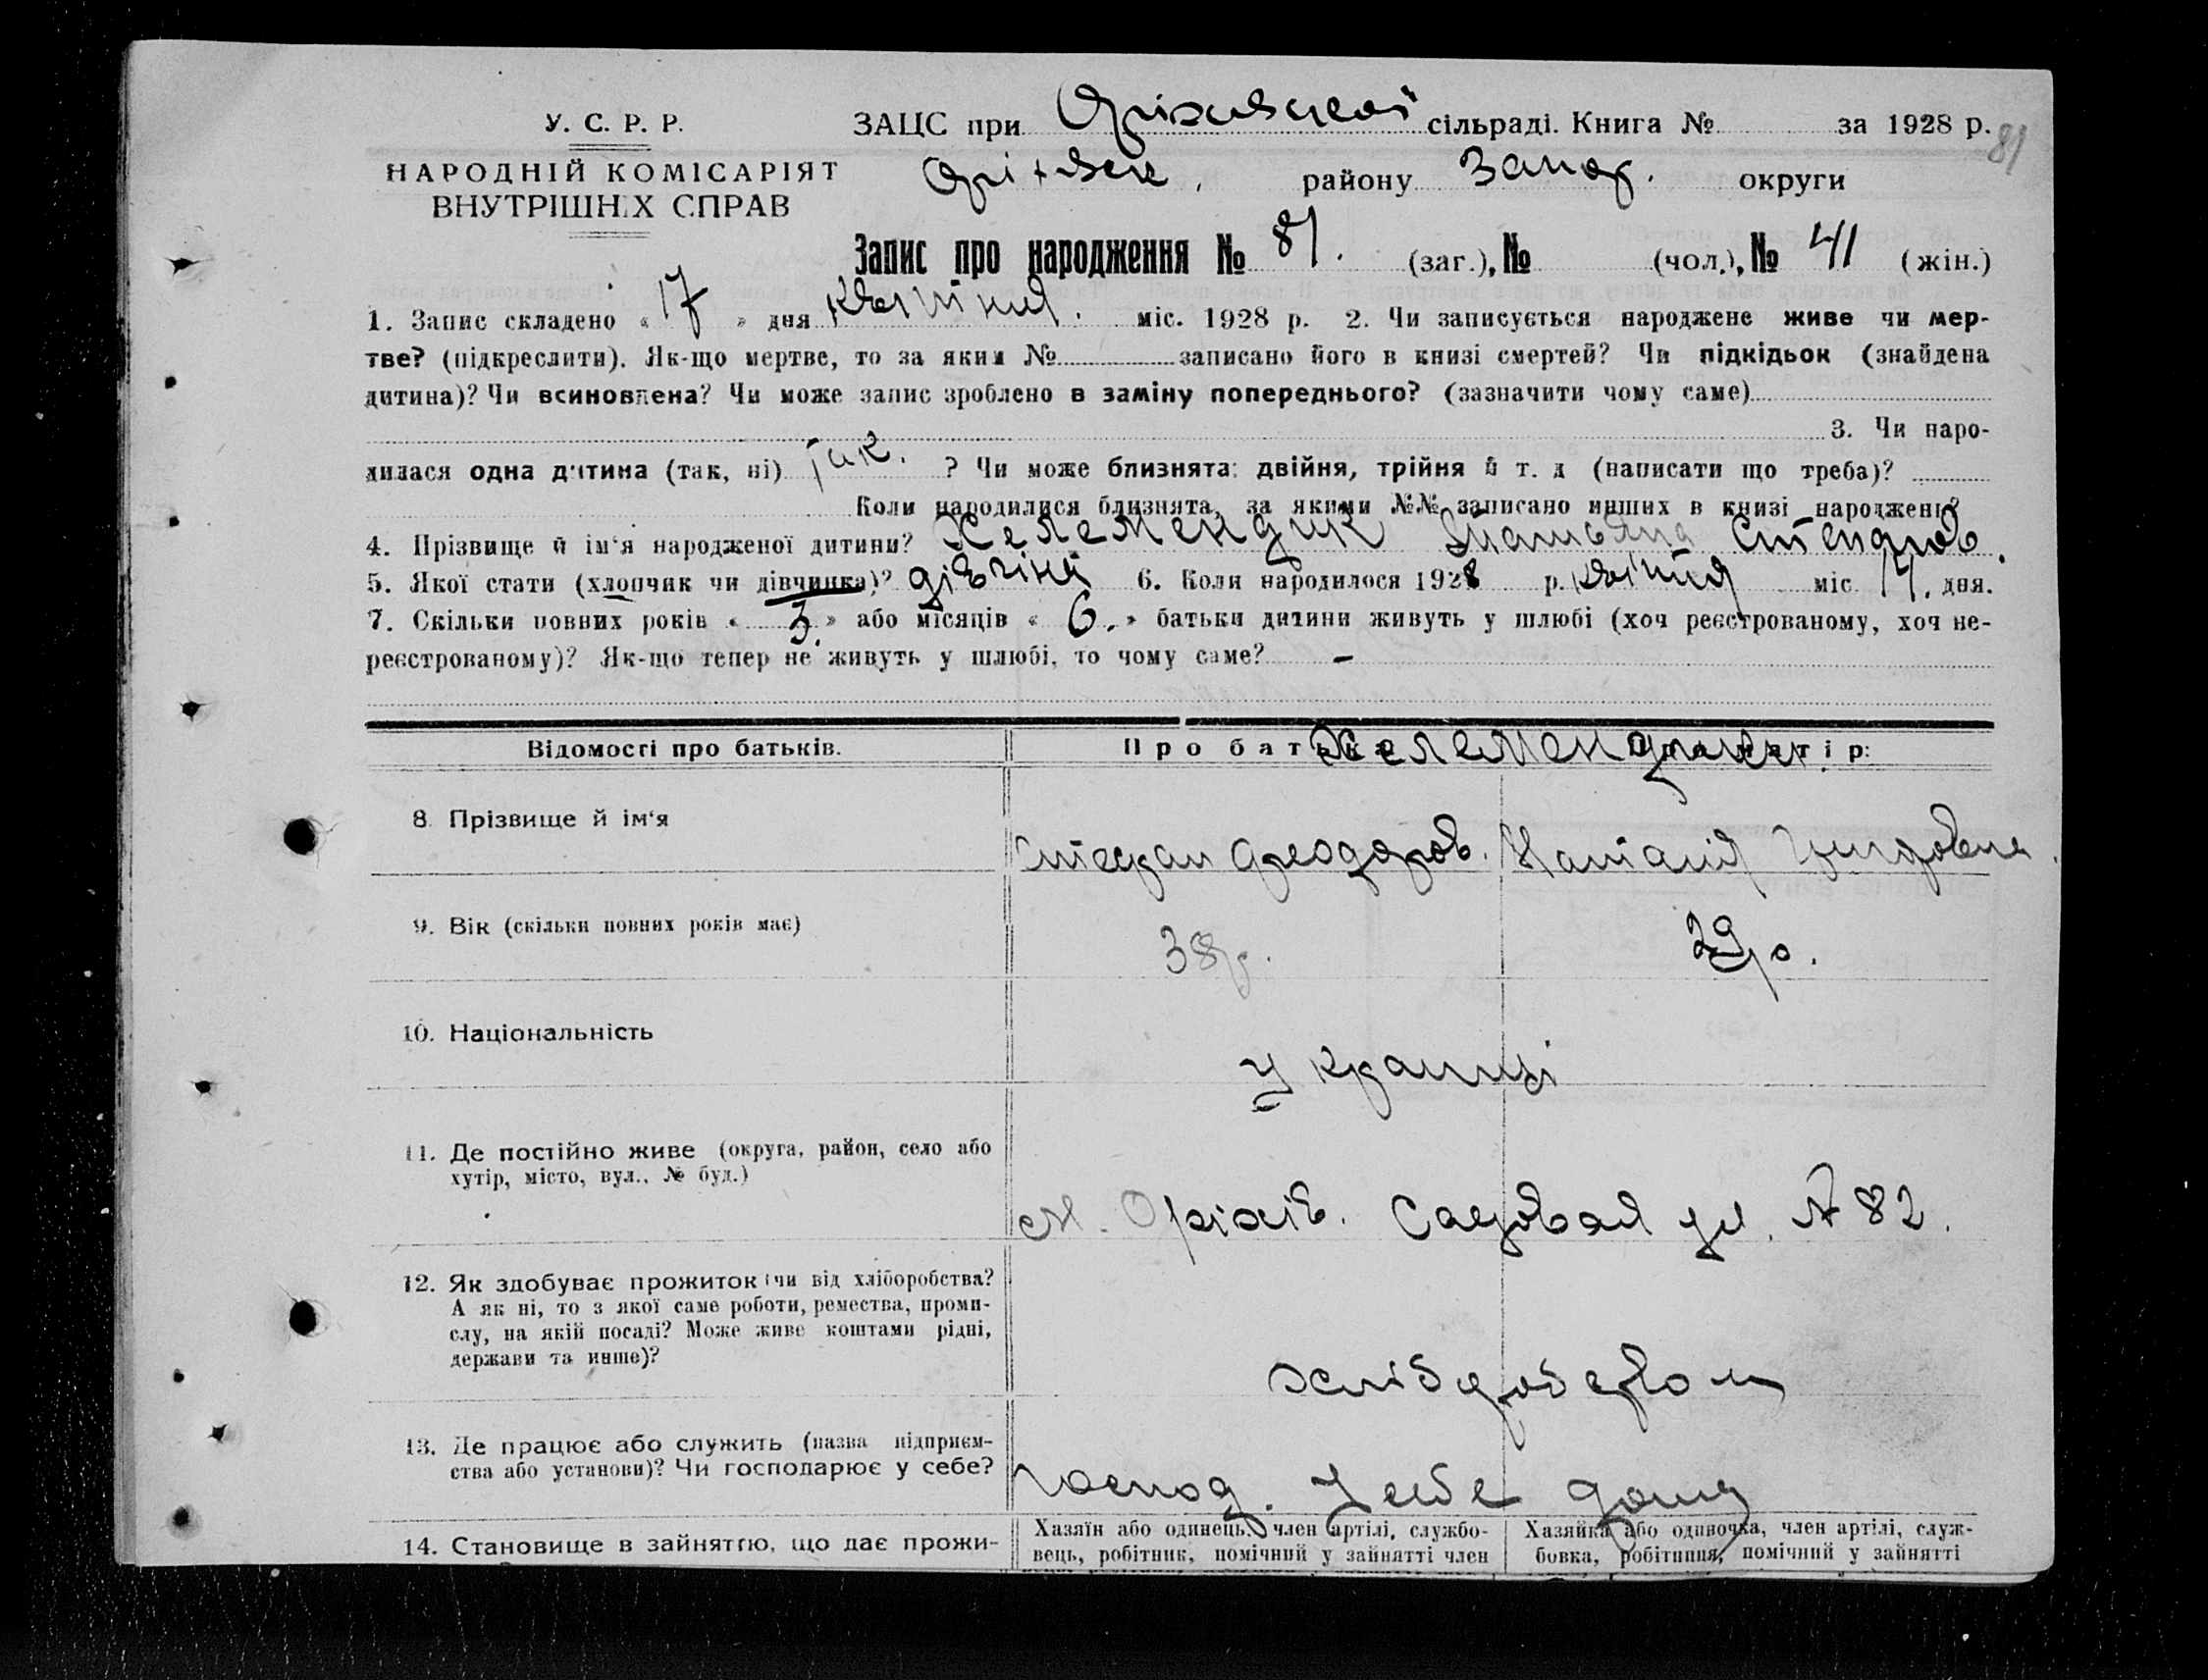 У. С. Р. Р.
НАРОДНІЙ КОМІСАРІЯТ
ВНУТРІШНІХ СПРАВ
ЗАЦС при Оріхівській сільраді. Книга № за 1928 р.
81
Оріхівськ. району Запор. округи
Запис про народження № 81. (заг.), № (чол.), № 41 (жін.)
1. Запис складено « 17 » дня квітня. міс. 1928 р. 2. Чи записується народжене живе чи мер-
тве? (підкреслити). Як-що мертве, то за яким № записано його в книзі смертей? Чи підкідьок (знайдена
дитина)? Чи всиновлена? Чи може запис зроблено в заміну попереднього? (зазначити чому саме)
3. Чи наро-
дилася одна дитина (так, ні) так. ? Чи може близнята: двійня, трійня й т. д (написати що треба)?
Коли народилися близнята, за якими №№ записано инших в книзі народжень?
4. Прізвище й ім‘я народженої дитини? Желемендик Татьяна Степанов.
5. Якої стати (хлопчик чи дівчинка)? дівчіна 6. Коли народилося 1928 р. квітня міс. 14. дня.
7. Скільки повних років « 3. » або місяців « 6. » батьки дитини живуть у шлюбі (хоч реєстрованому, хоч не-
реєстрованому)? Як-що тепер не живуть у шлюбі, то чому саме? –
Відомості про батьків. Про батька: Про матір:
Желемендики.
8. Прізвище й ім‘я Стефан Феодоров. Наталія
9. Вік (скільки повних років має) 38 р. 29 р.
10. Національність українці
11. Де постійно живе (округа, район, село або
хутір, місто, вул., № буд.)
м. Оріхів. Садовая ул. № 82.
12. Як здобуває прожиток (чи від хліборобства?
А як ні, то з якої саме роботи, ремества, проми-
слу, на якій посаді? Може живе коштами рідні,
держави та инше)?
хліборобством
13. Де працює або служить (назва підприєм-
ства або установи)? Чи господарює у себе?
господ. у себе дома
14. Становище в зайняттю, що дає прожи-
Хазяїн або одинець, член артілі, службо-
вець, робітник, помічний у зайнятті член
Хазяйка або одиночка, член артілі, служ-
бовка, робітниця, помічний у зайнятті